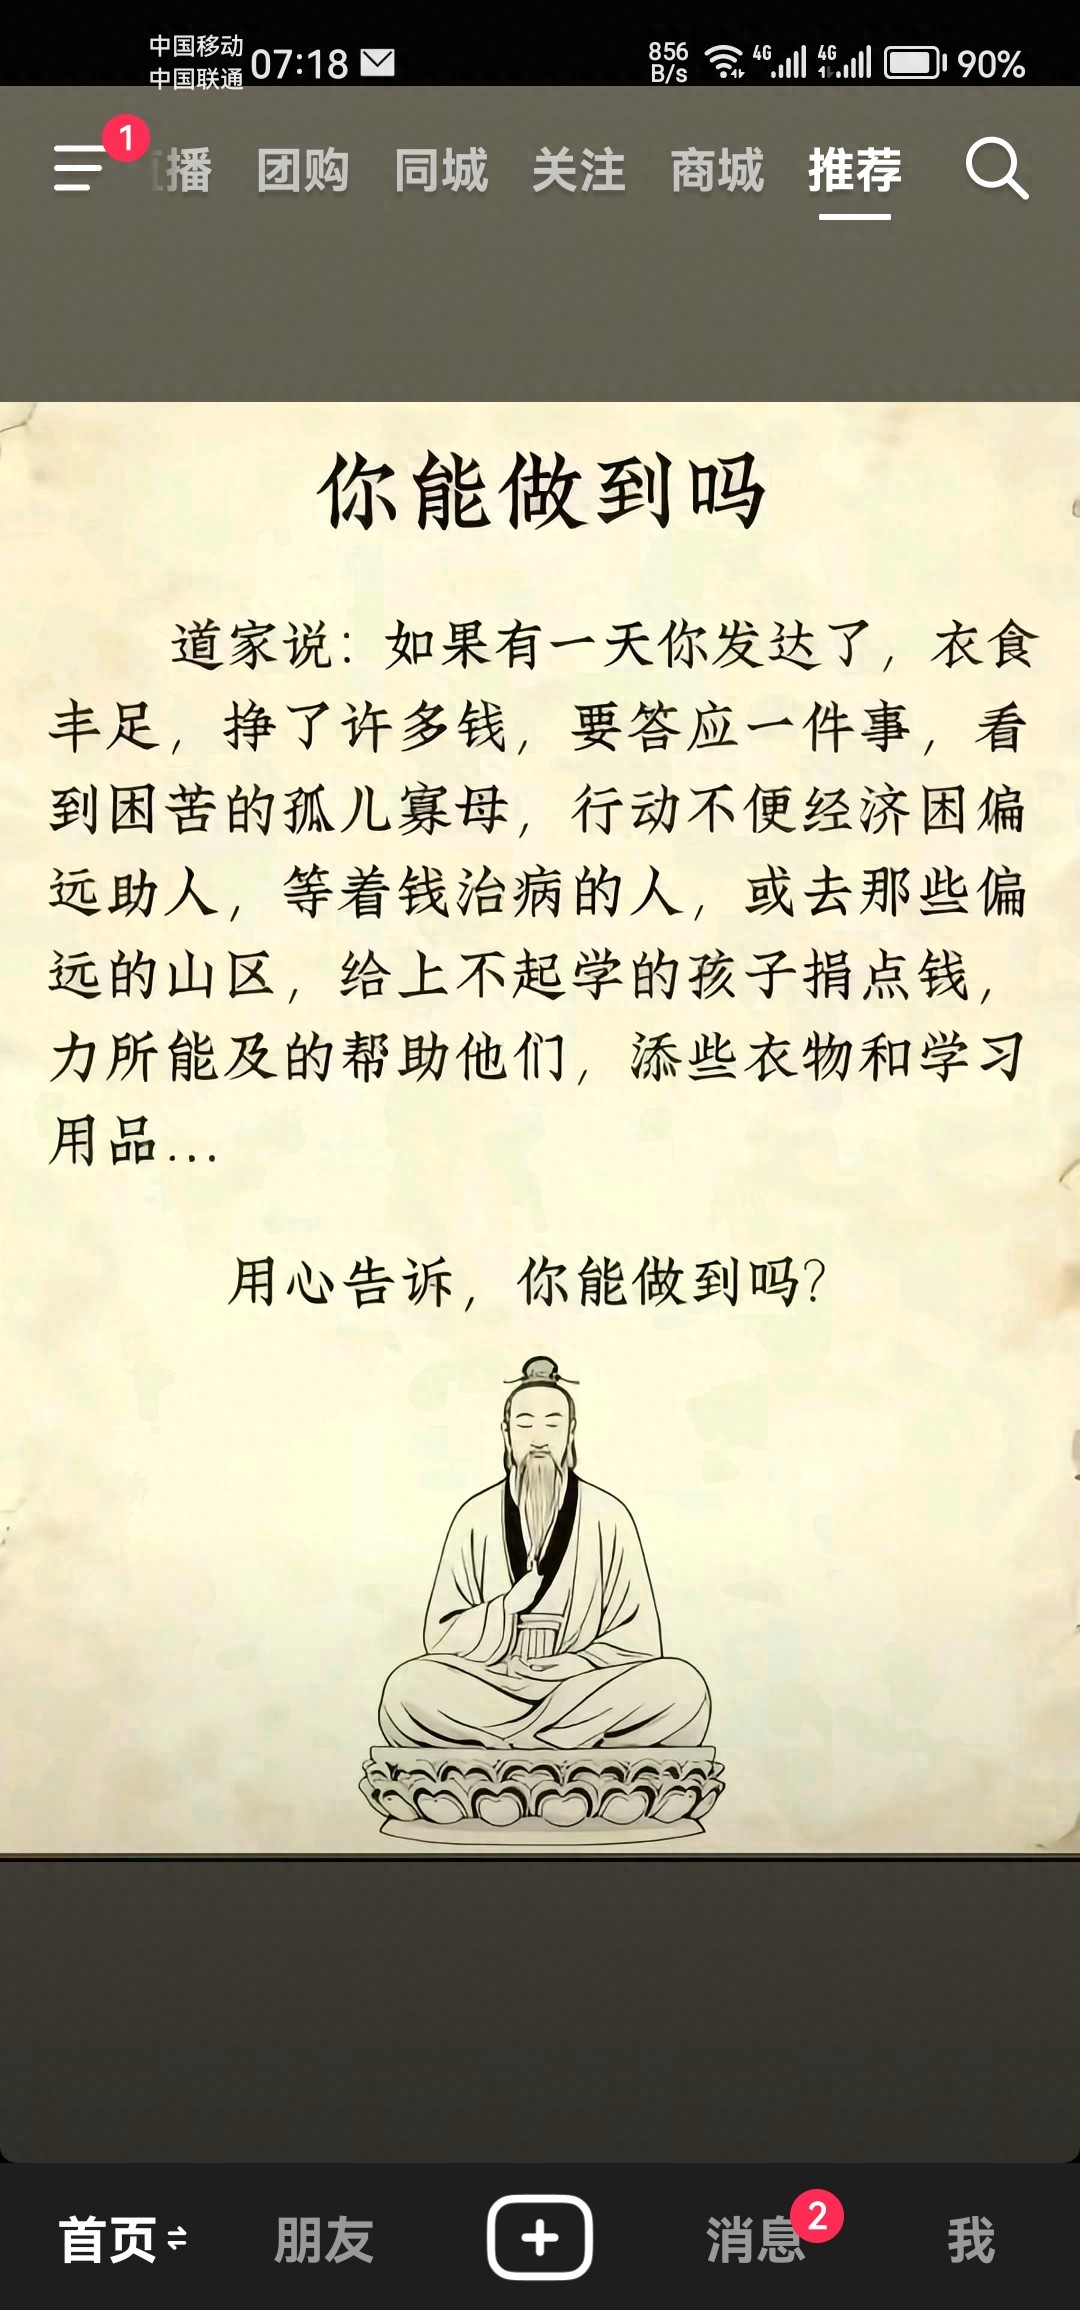 中国移动
中国联通
07:18
856
B/s
4G
4G
90%
1
播
团购
同城
关注
商城
推荐
你能做到吗
道家说：如果有一天你发达了，衣食
丰足，挣了许多钱，要答应一件事，看
到困苦的孤儿寡母，行动不便经济困偏
远助人，等着钱治病的人，或去那些偏
远的山区，给上不起学的孩子捐点钱，
力所能及的帮助他们，添些衣物和学习
用品...
用心告诉，你能做到吗？
首页
朋友
消息
2
我